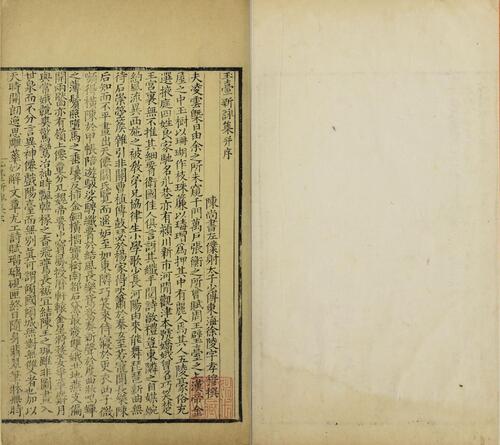 玉臺新詠集并序
陳尚書左僕射太子少傅東海徐陵字孝穆撰
夫凌雲槩日由余之所未窺千門萬戶張衡之所曾賦周王璧臺之上漢帝金
屋之中玉樹以珊瑚作枝珠簾以瑇瑁為押其中有麗人焉其人五陵豪族充
選掖庭四姓良家馳名永巷亦有潁川新市河間觀津本號嬌娥曾名巧笑楚
王宮裏無不推其細霄衛國佳人俱言訝其纖手閱詩敦禮豈東鄰之自媒婉
約風流異西施之被敎弟兄協律生小學歌少長河陽由來能舞琵琶新曲無
待石崇箜篌雜引非關曹植傳鼓瑟於楊家得吹簫於秦女至若寵聞長樂陳
后知而不平畫出天僊閼氏覽而遙妬至如東鄰巧笑來侍寢於更衣西子微
顰得橫陳於甲帳陪遊馺娑騁纖霄於結風長樂鴛鴦奏新聲於度曲妝鳴蟬
之薄鬢照墮馬之垂鬟反插金鈿橫抽寶樹南都石黛最發雙蛾北地燕支偏
開兩靨亦有嶺上僊童分丸魏帝霄中寶鳳授曆軒轅金星將婺女爭華麝月
與常娥競爽驚鸞冶袖時飄韓掾之香飛鷰長裾宜結陳王之珮雖非圖畫入
甘泉而不分言異神僊戲陽臺而無別真可謂傾國傾城無對無雙者也加以
天時開朗逸思雕華妙解文章尤工詩賦瑠璃硯匣終日隨身翡翠筆牀無時